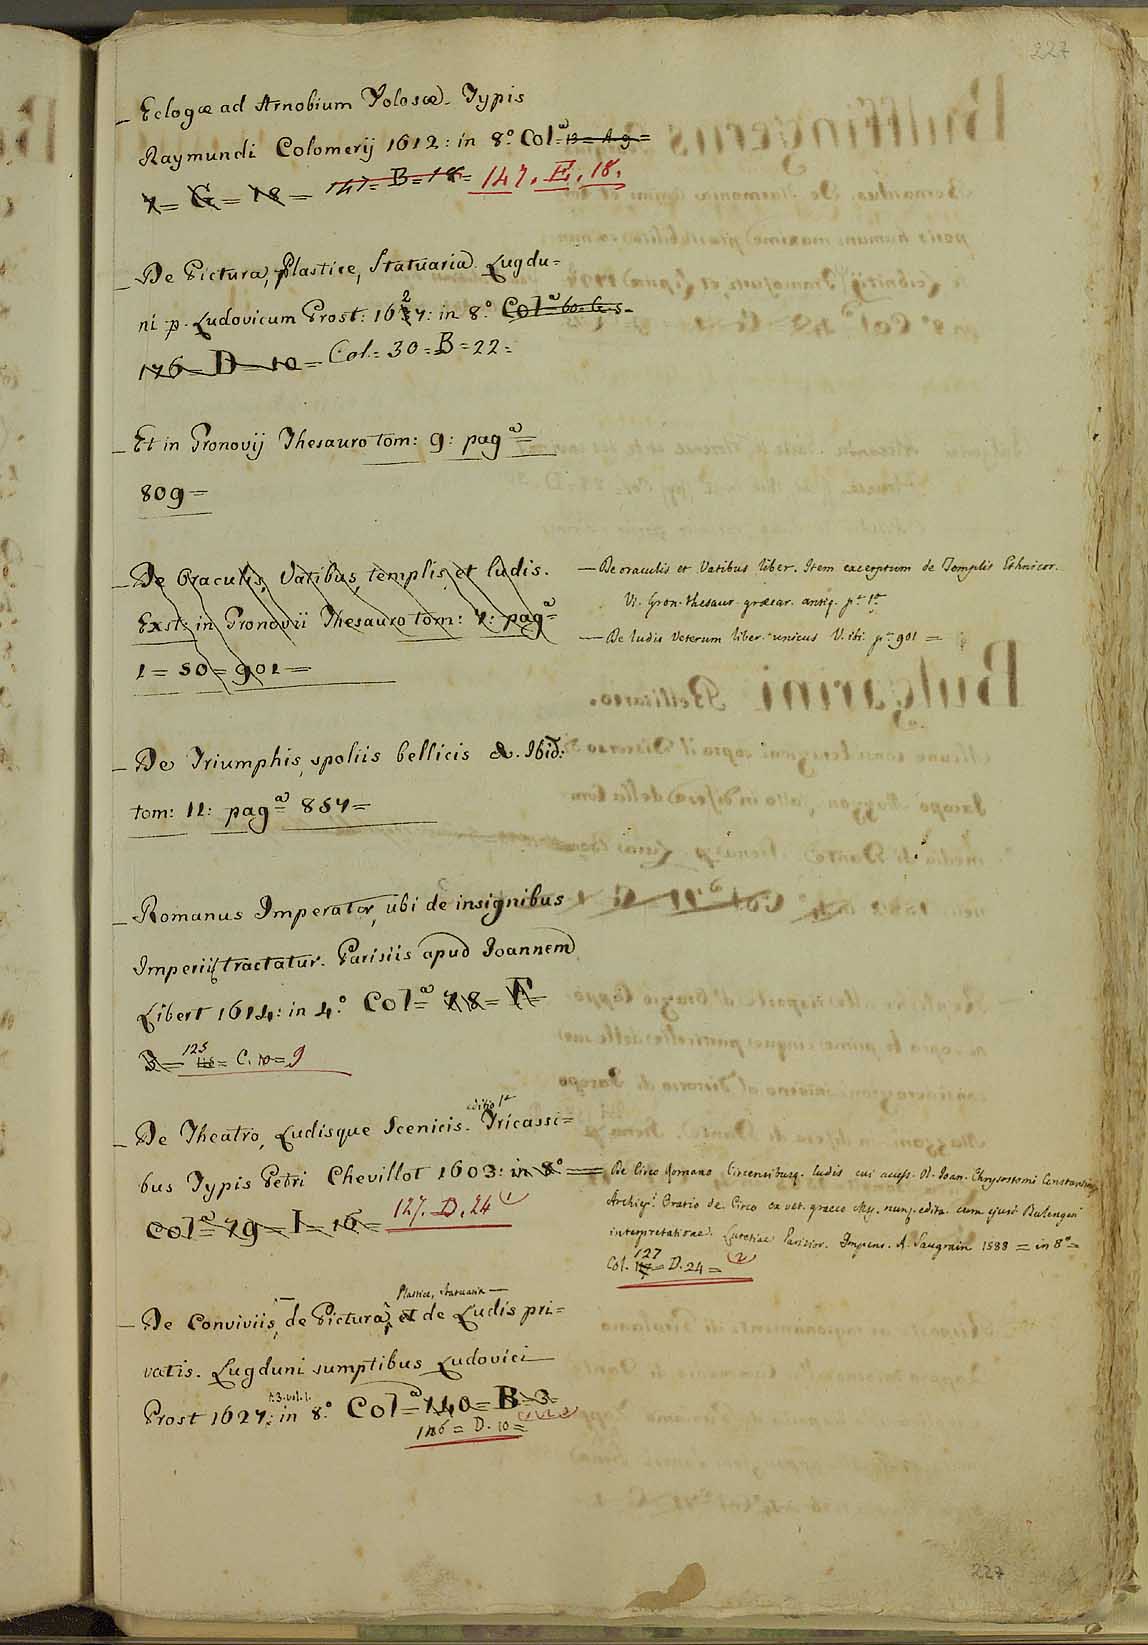 227
Eclogæ ad Arnobium Tolosæ. Typis
Raymundi Colomerij 1612: in 8.° Col.ª 13 = A 9 =
7 = G = 18 = 147 = B = 18 = 147. E. 18.
De Pictura, Plastice, Statuaria. Lugdu=
ni p. Ludovicum Prost: 1627: in 8.° Col.ª 60 = G. 5 =
176 = D = 10 = Col.= 30 = B = 22 =
Et in Gronovij Thesauro tom: 9: pagª =
809 =
De Oraculis, Vatibus, templis, et ludis.
Exst: in Gronovii Thesauro tom: 7: pagª =
1 = 50 = 901 =
— De oraculis et Vatibus liber. Item excerptum de Templis Ethnicor.
V. Gron. thesaur. græcar. antiq.
— De ludis Veterum liber unicus V. ibi pª 901 =
De Triumphis, spoliis bellicis &. Ibid:
tom: 11: pagª 857 =
Romanus Imperator, ubi de insignibus
Imperii tractatur. Parisiis apud Joannem
Libert 1614: in 4.° Col=ª 78 = F =
3 = 125 = C. 10 = 9
De Theatro, Ludisque Scenicis. editio 1ª Tricassi=
bus Typis Petri Chevillot 1603: in 8° =
Colª 79 = I = 16 = 127. D. 24 (1)
De Circo Romano, Circensibusq. ludis, cui access. D. Ioan. Chrysostomi Constantinop.
Archiep. Oratio de Circo ex vet. græco nunq. edita cum ejusd. Bulengeri
interpretatione. Lutetiae Parisior. Impens. A. Saugrain 1598 = in 8° =
Col. 127 = D. 24 = (2)
Plastice, Statuaria —
De Conviviis, de Pictura, et de Ludis pri=
vatis. Lugduni sumptibus Ludovici
Prost 1627: t. 3. vol. 1. in 8.° Col=ª 140 = B = 3 =
176 = D. 10 =
227